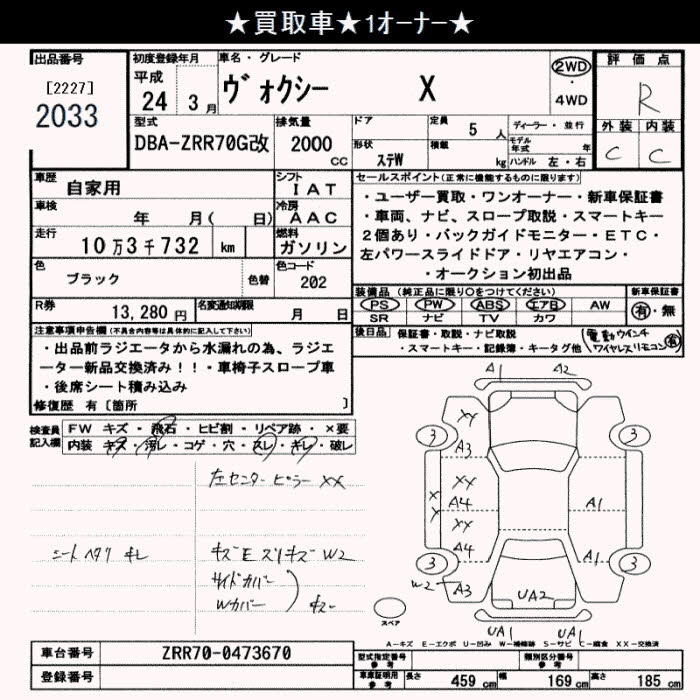 ★買取車★1オーナー★
出品番号
[2227]
2033
初度登録年月
平成
24 3月
車名・グレード
ヴォクシー X
2WD
4WD
評価点
R
外装 内装
C C
型式
DBA-ZRR70G改
排気量
2000
CC
ドア
形状
ステW
定員
5 人
積載
kg
ディーラー・並行
モデル年式 年
ハンドル 左・右
車歴
自家用
シフト
IAT
車検
年 月( 日)
冷房
AAC
走行
10万3千732 km
燃料
ガソリン
色
ブラック
色替
色コード
202
R券
13,280 円
名変通知期限
月 日
セールスポイント(正常に機能するものに限ります)
・ユーザー買取・ワンオーナー・新車保証書
・車両、ナビ、スロープ取説・スマートキー
2個あり・バックガイドモニター・ETC・
左パワースライドドア・リヤエアコン・
・オークション初出品
装備品(純正品に限り○をつけてください)
PS PW ABS エアB AW
SR ナビ TV カワ
新車保証書
有・無
後日品
保証書・取説・ナビ取説
・スマートキー・記録簿・キータグ他
電動ウインチ
ワイヤレスリモコン 有
注意事項申告欄(不具合内容等は具体的に記入して下さい)
・出品前ラジエータから水漏れの為、ラジエ
ーター新品交換済み!!・車椅子スロープ車
・後席シート積み込み
修復歴 有[箇所 ]
検査員
記入欄
FW キズ・飛石・ヒビ割・リペア跡・×要
内装 キズ・汚レ・コゲ・穴・スレ・キレ・破レ
左センターピラー XX
シートヘタリ キレ
キズEスリキズW2
サイドカバー
Wカバー
A1 A2
XX
3 3
A3
XX
X
X
A4
A1
XX
A4
A1
3 3
W2 A3
UA2
スペア
UA1 UA1
A-キズ E-エクボ U-凹み W-補修跡 S-サビ C-腐食 XX-交換済
車台番号
ZRR70-0473670
登録番号
型式指定番号
参考
類別区分番号
参考
車庫証明用
参考
長さ 459 cm 幅 169 cm 高さ 185 cm